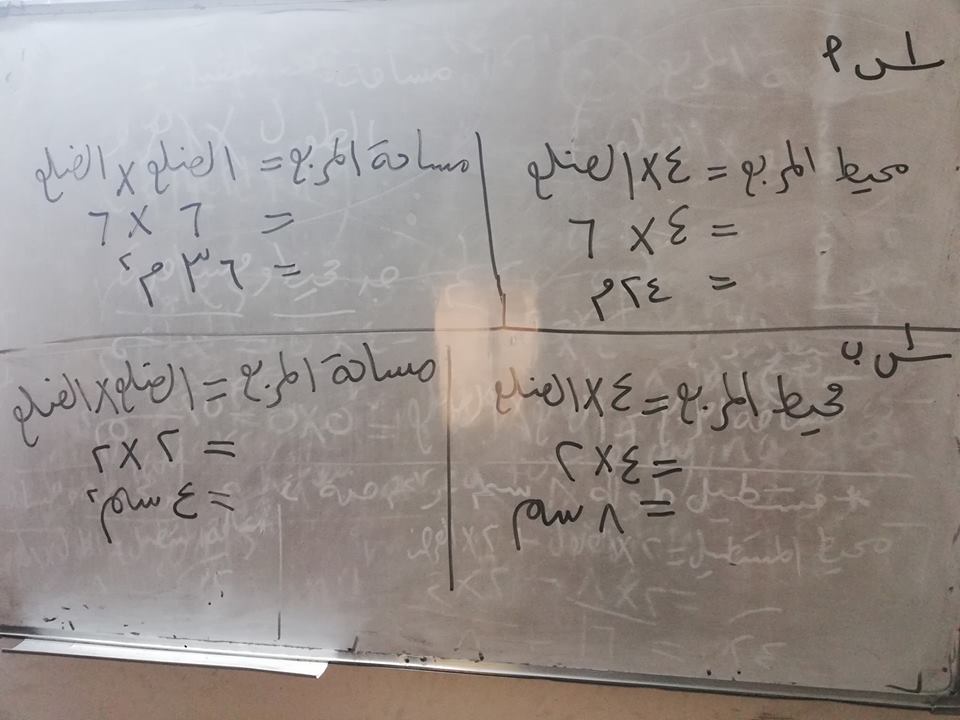 س١ أ
محيط المربع = ٤ × الضلع
= ٤ × ٦
= ٢٤ م
مساحة المربع = الضلع × الضلع
= ٦ × ٦
= ٣٦ م٢
س١ ب
محيط المربع = ٤ × الضلع
= ٤ × ٢
= ٨ سم
مساحة المربع = الضلع × الضلع
= ٢ × ٢
= ٤ سم٢